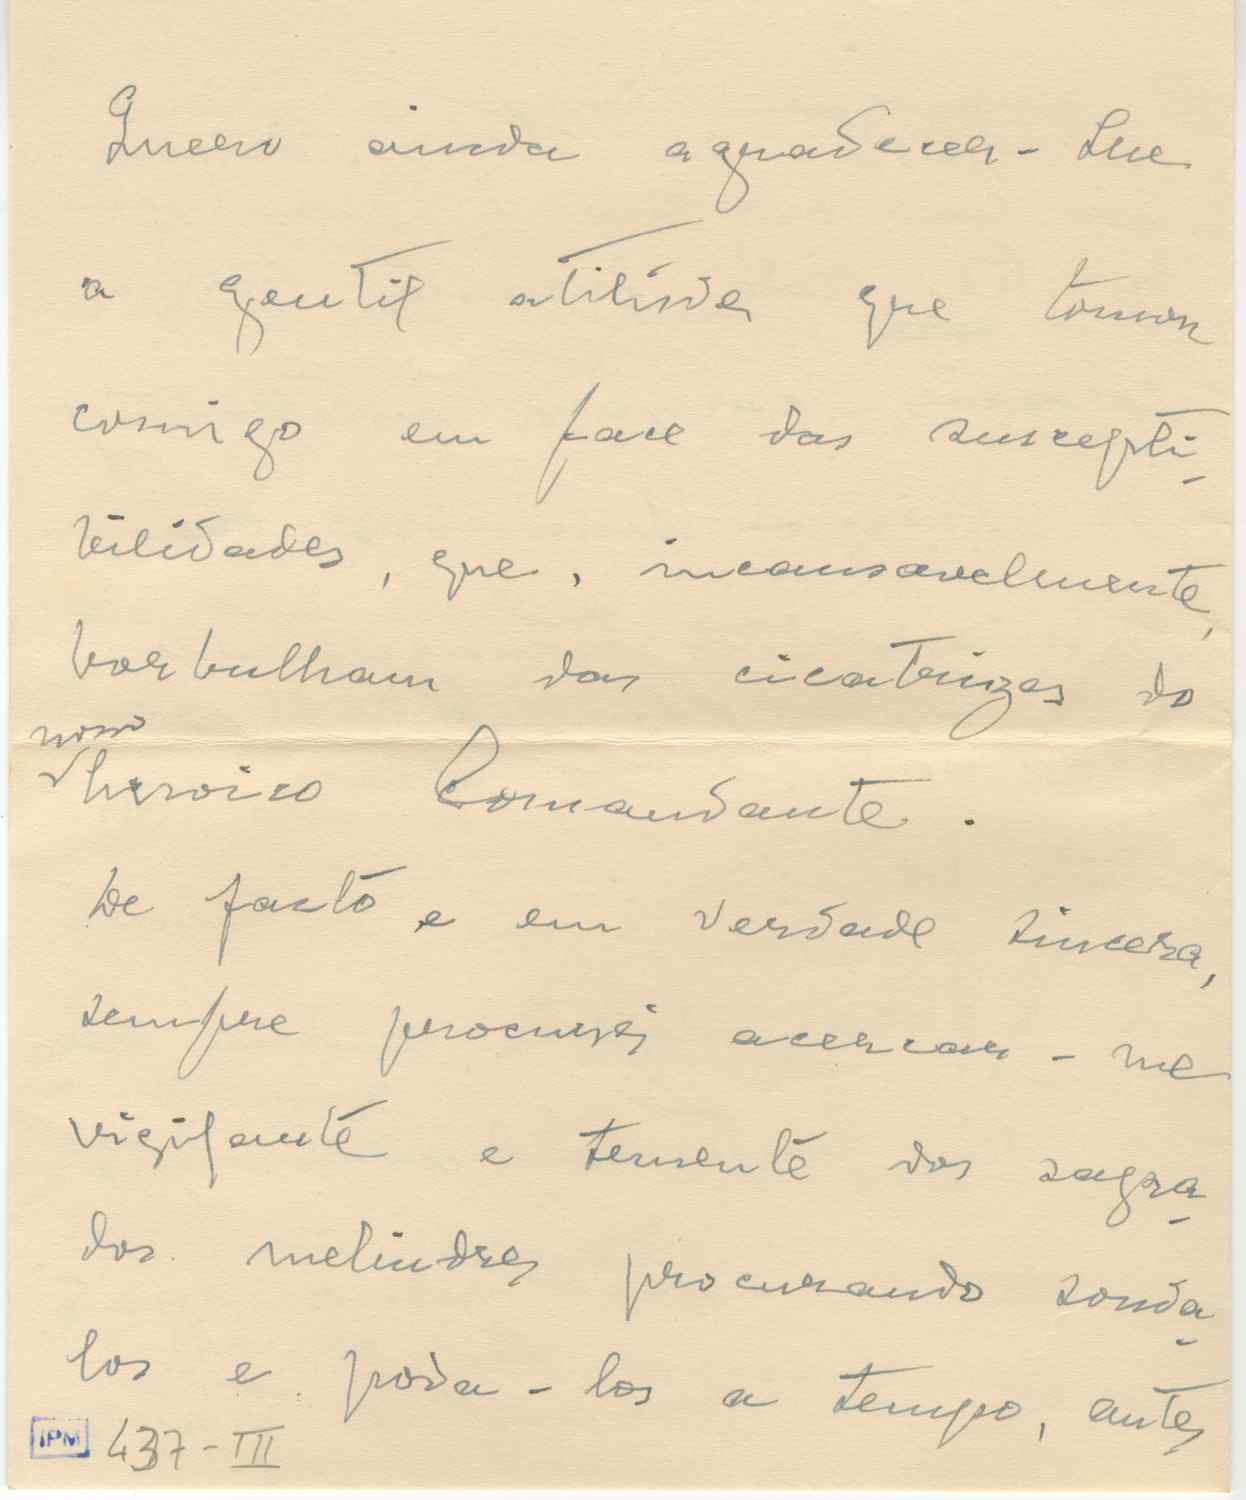 Quero ainda agradecer-lhe
a gentil atitude que tomou
comigo em face das suscepti-
bilidades, que, incansavelmente,
borbulham das cicatrizes do
nosso
heroico Comandante.
De facto, e em verdade sincera,
sempre procurei acercar-me
vigilante e temente dos sagra-
dos melindres procurando sonda-
los e poda-los a tempo, antes
IPM 437-III